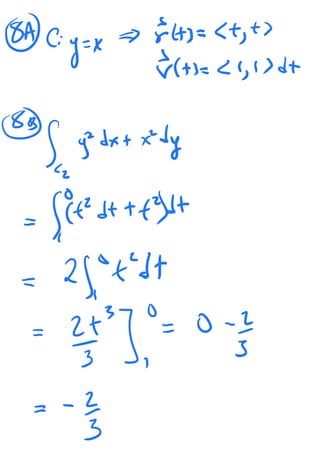 8A) C: y=x ⇒ r⃗(t) = <t, t>
v⃗(t) = <1, 1> dt
8B)
∫_{C₂} y² dx + x² dy
= ∫₁⁰ (t² dt + t²) dt
= 2∫₁⁰ t² dt
= 2t³/3 ]₁⁰ = 0 - 2/3
= - 2/3